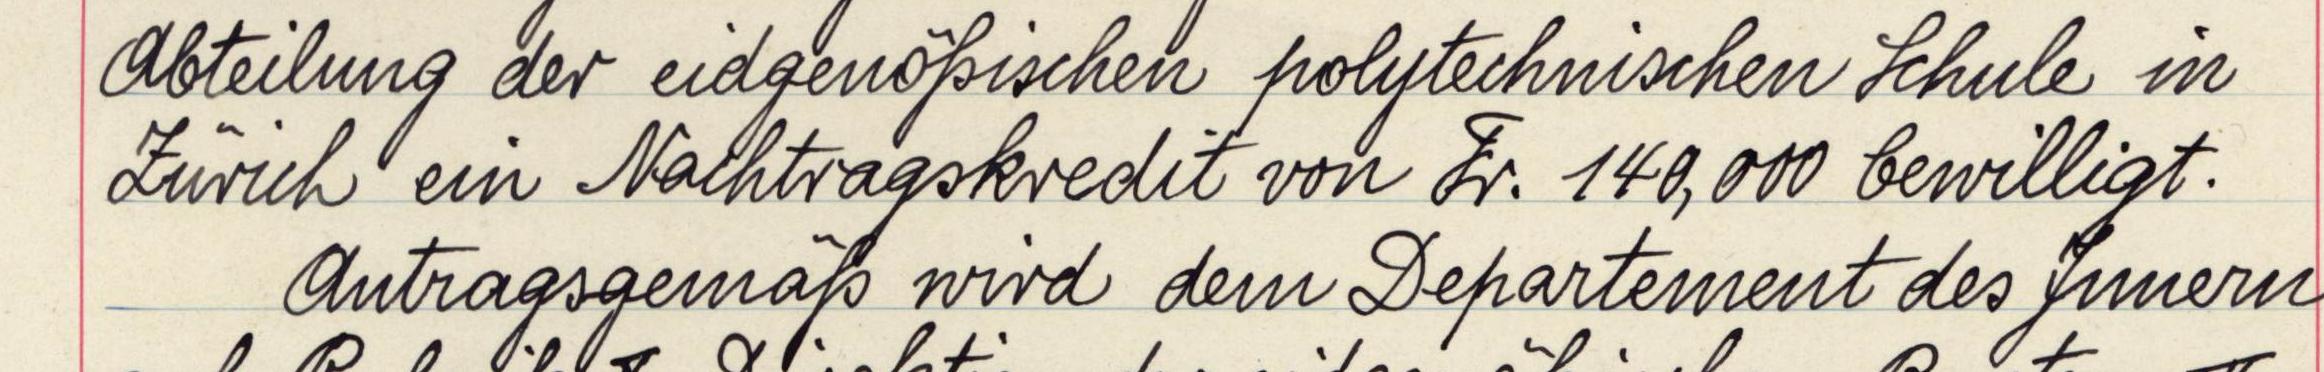 Abteilung der eidgenößischen polytechnischen Schule in
Zürich ein Nachtragskredit von Fr. 140,000 bewilligt.
Antragsgemäß wird dem Departement des Innern